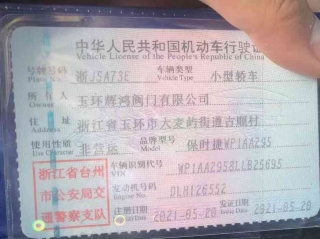 中华人民共和国机动车行驶证
Vehicle License of the People's Republic of China
号牌号码 浙J5A73E 车辆类型 小型轿车
Plate No. Vehicle Type
所有人 玉环辉鸿阀门有限公司
Owner
住址 浙江省玉环市大麦屿街道古顺村
Address
使用性质 非营运 品牌型号 保时捷WP1AA295
Use Character Model
浙江省台州市公安局交通警察支队
车辆识别代号
VIN
发动机号码 DLH126552
Engine No.
注册日期 2021-05-20 发证日期 2021-05-20